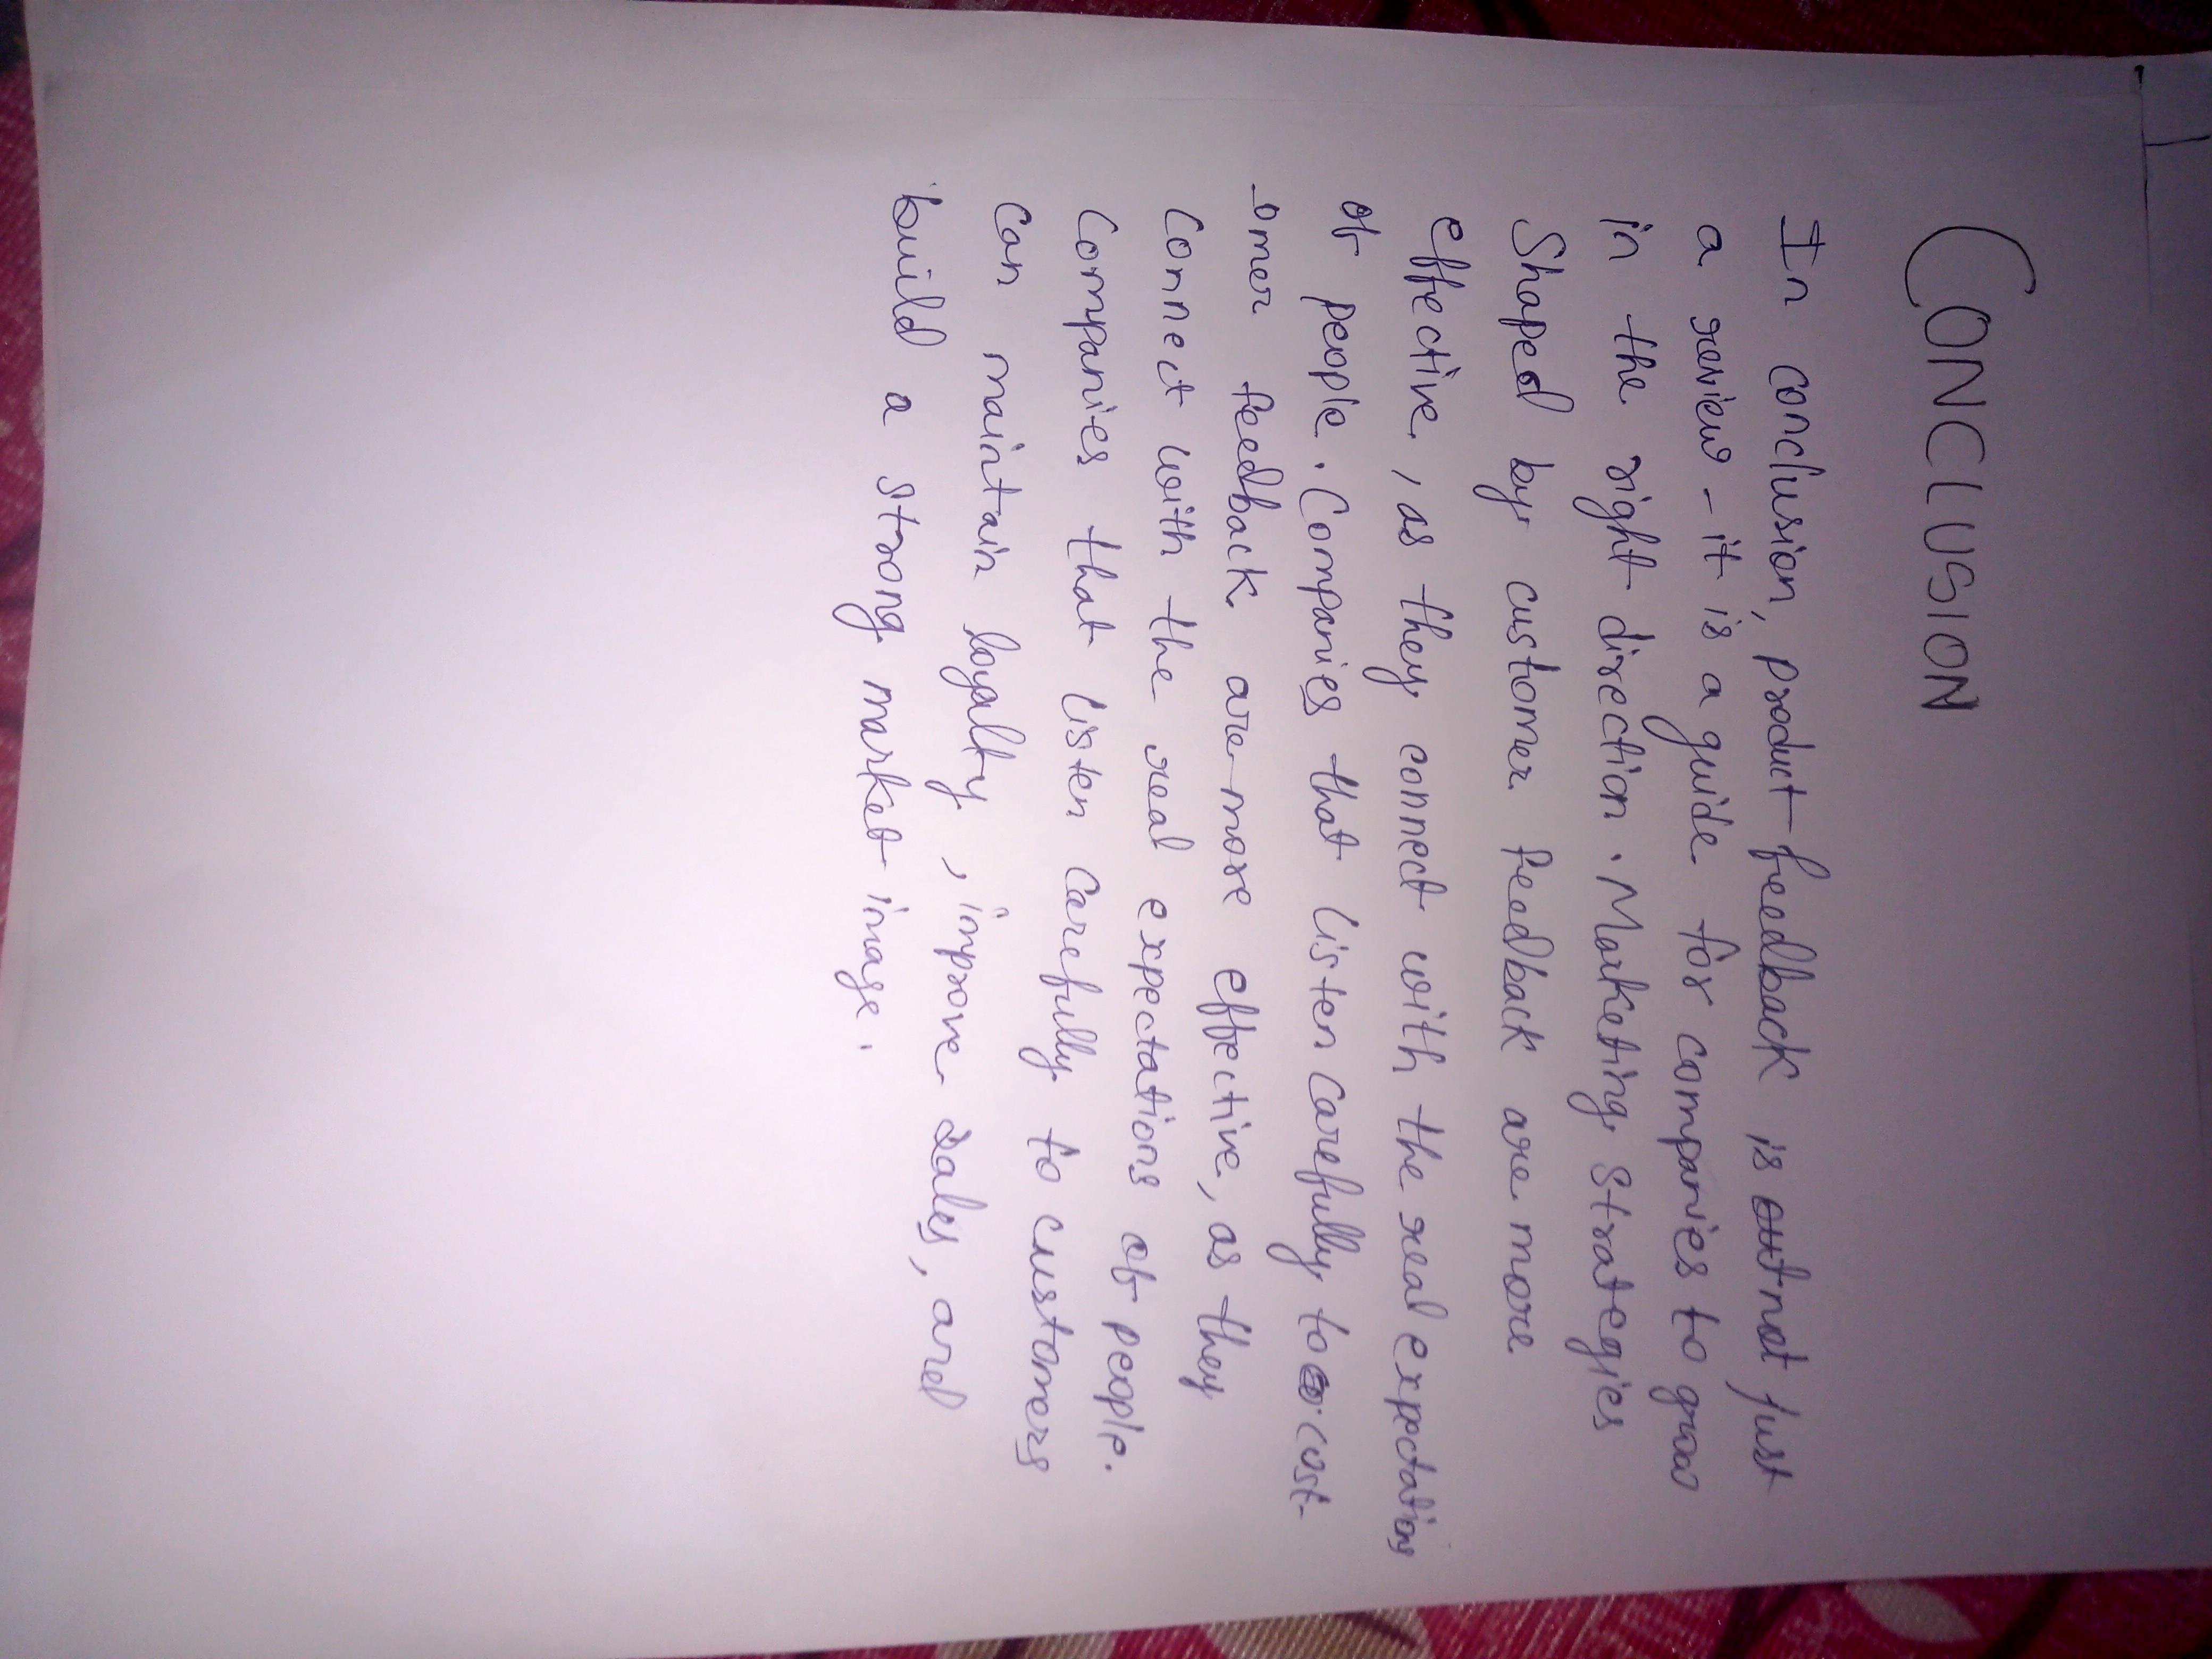 CONCLUSION
In conclusion, product feedback is not just
a review - it is a guide for companies to grow
in the right direction. Marketing Strategies
Shaped by customer feedback are more
effective, as they connect with the real expectations
of people. Companies that listen carefully to cust-
-omer feedback are more effective, as they
Connect with the real expectations of people.
Companies that listen carefully to customers
can maintain loyalty, improve sales, and
build a strong market image.